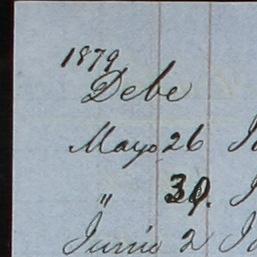 1879
Debe
Mayo 26
" 30.
Junio 2